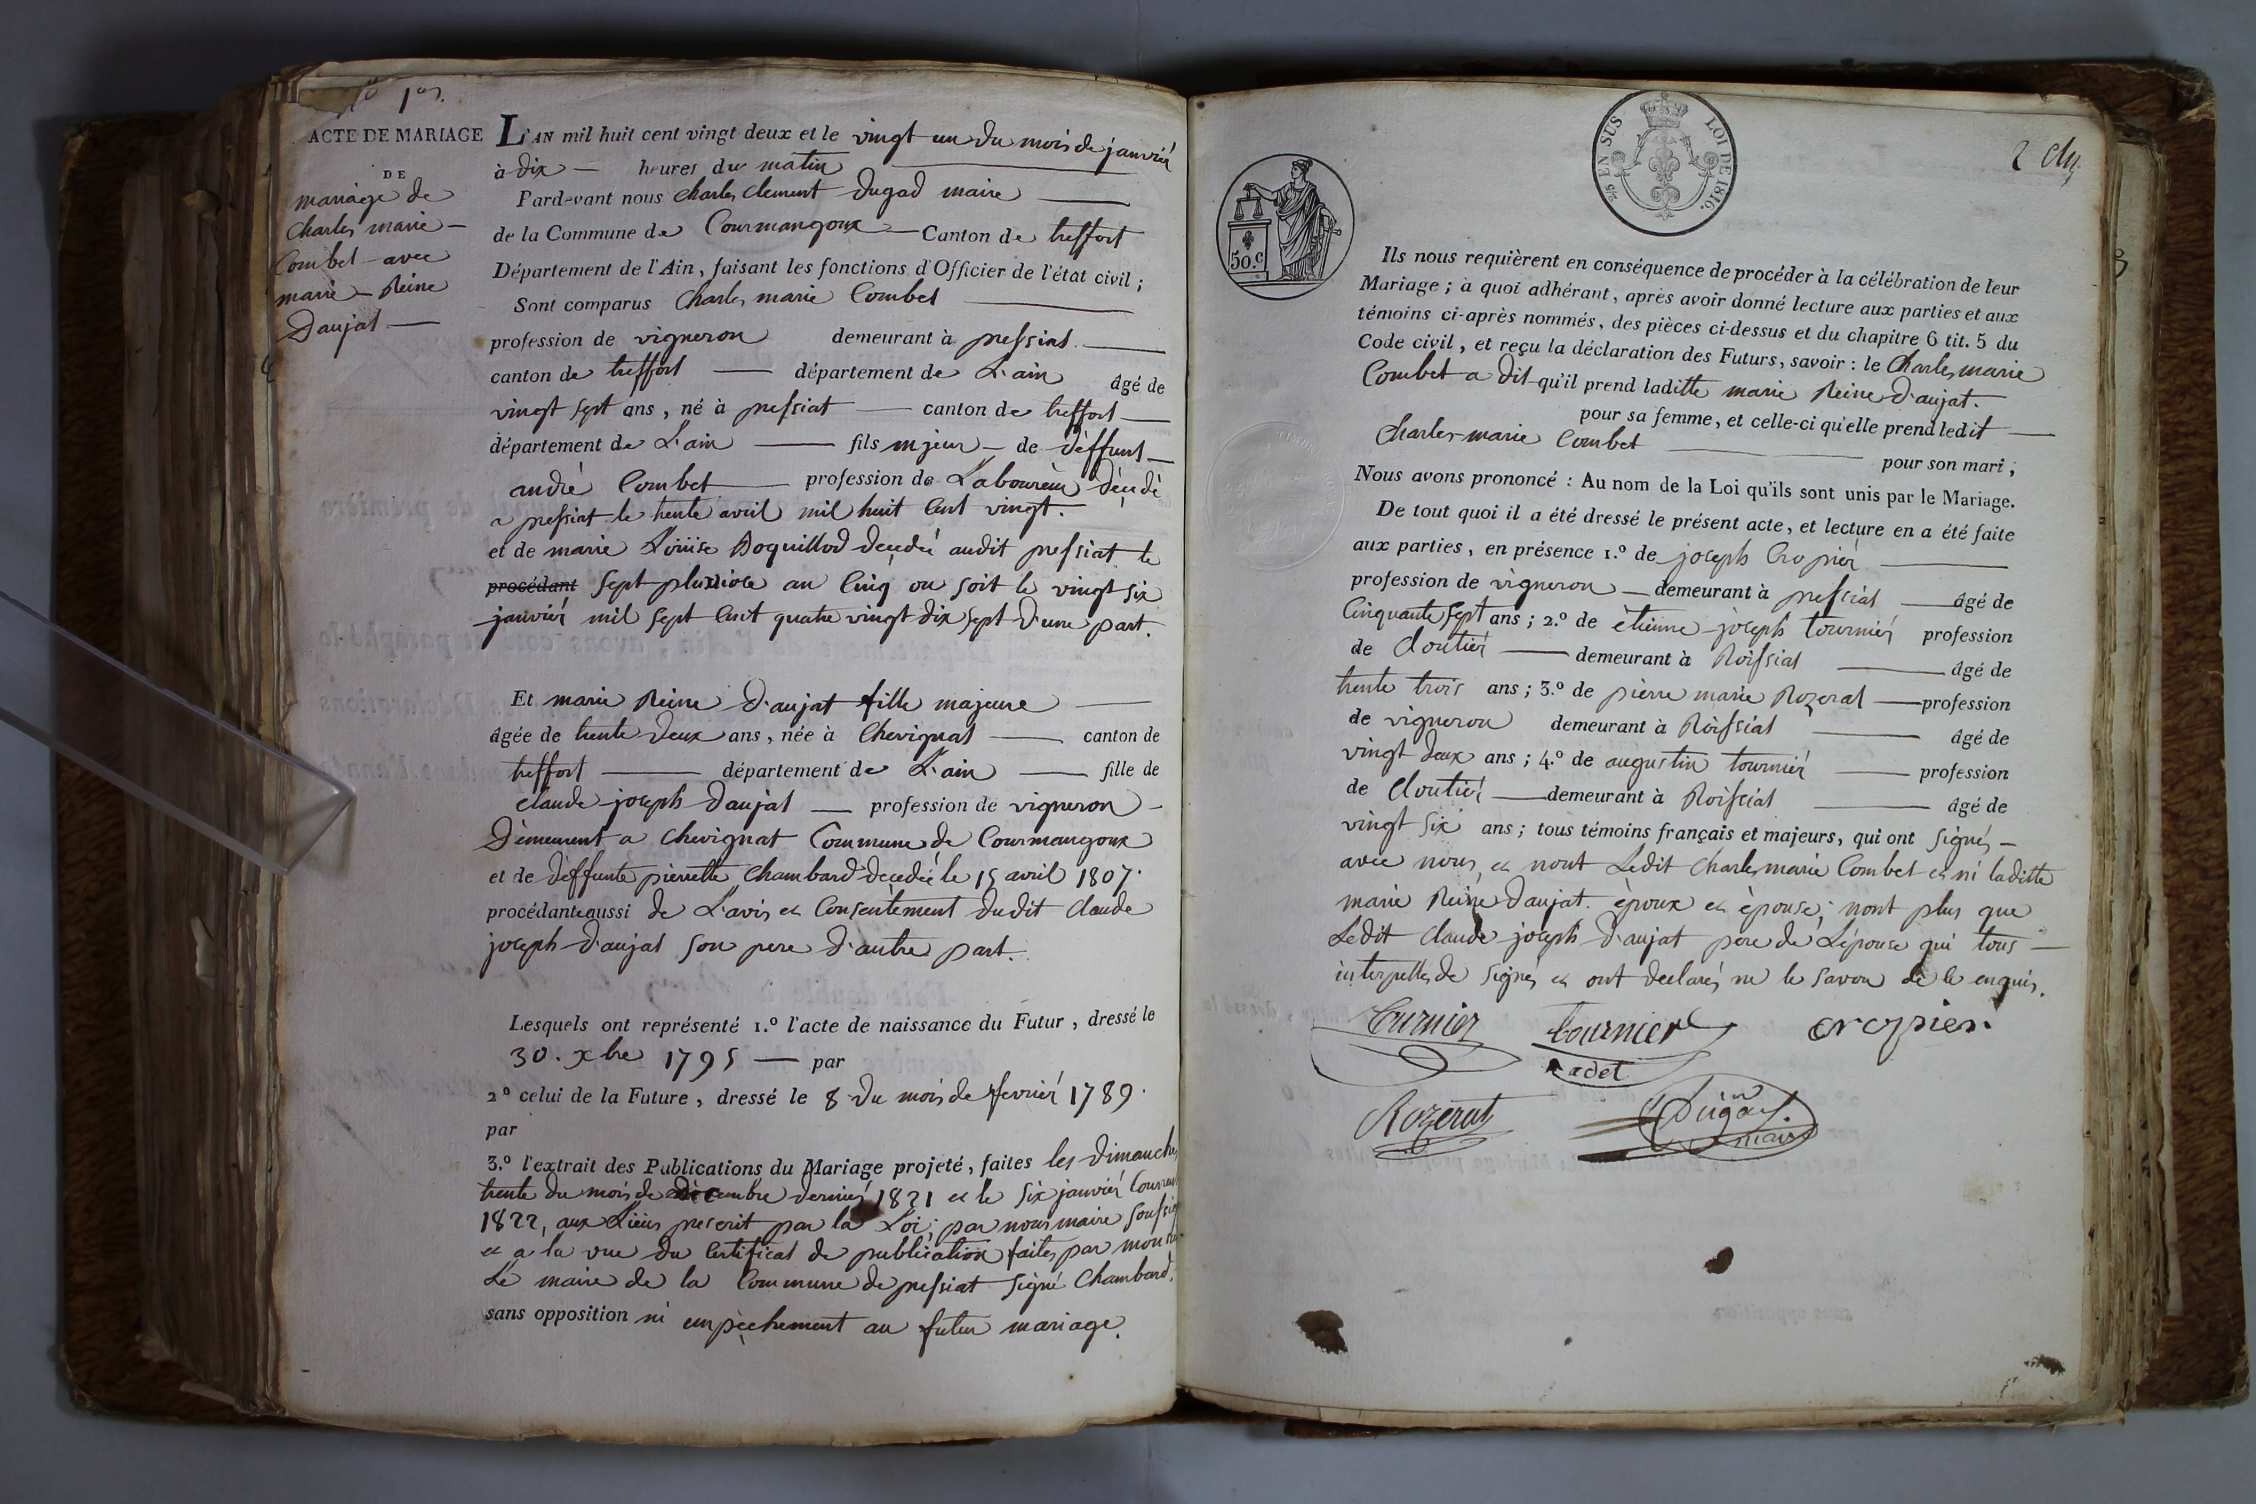 1er.
ACTE DE MARIAGE
DE
mariage de
Charles marie
Combet avec
marie Reine
Daujat
L'AN mil huit cent vingt deux et le vingt un du mois de janvier
à dix heures du matin
Pard-vant nous Charles Clement Dugad maire
de la Commune de Courmangoux Canton de treffort
Département de l'Ain, faisant les fonctions d'Officier de l'état civil ;
Sont comparus Charles marie Combet
profession de vigneron demeurant à pressiat
canton de treffort département de L'ain âgé de
vingt sept ans, né à pressiat canton de treffort
département de L'ain fils mjeur de deffunt
andré Combet profession de Laboureur décédé
a pressiat le trente avril mil huit Cent vingt.
et de marie Louise Boquillod decedée audit pressiat le
procédant sept pluviose au Cinq ou soit le vingt six
janvier mil sept Cent quatre vingt dix sept d'une part.
Et marie Reine d'aujat fille majeure
âgée de trente deux ans, née à Chevignat canton de
treffort département de L'ain fille de
claude joseph daujat profession de vigneron
Demeurent a Chevignat Commune de Courmangoux
et de deffunte pierrette Chambard decedée le 15 avril 1807.
procédante aussi de L'avis et Consentement dudit Claude
joseph d'aujat son pere d'autre part.
Lesquels ont représenté 1.º l'acte de naissance du Futur, dressé le
30. xbre 1795 par
2º celui de la Future, dressé le 8 du mois de fevrier 1789.
par
3.º l'extrait des Publications du Mariage projeté, faites les Dimanches
trente du mois de decembre dernier 1821 et le six janvier Courant
1822, aux Lieus prescrit par la Loi; par nous maire soussi
et a la vue du Certificat de publication faites par mon
Le maire de la Commune de pressiat signé Chambard.
sans opposition ni empêchement au futur mariage.
2/5 EN SUS LOI DE 1816.
50. C
Ils nous requièrent en conséquence de procéder à la célébration de leur
Mariage ; à quoi adhérant, après avoir donné lecture aux parties et aux
témoins ci-après nommés, des pièces ci-dessus et du chapitre 6 tit. 5 du
Code civil, et reçu la déclaration des Futurs, savoir : le Charles marie
Combet a dit qu'il prend laditte marie Reine d'aujat.
pour sa femme, et celle-ci qu'elle prend ledit
Charles marie Combet pour son mari ;
Nous avons prononcé : Au nom de la Loi qu'ils sont unis par le Mariage.
De tout quoi il a été dressé le présent acte, et lecture en a été faite
aux parties, en présence 1.º de joseph Cropier
profession de vigneron demeurant à pressiat âgé de
Cinquante sept ans ; 2.º de etienne joseph tournier profession
de Cloutier demeurant à Roissiat âgé de
trente trois ans ; 3.º de pierre marie Rozerat profession
de vigneron demeurant à Roissiat âgé de
vingt deux ans ; 4.º de augustin tournier profession
de Cloutier demeurant à Roissiat âgé de
vingt six ans ; tous témoins français et majeurs, qui ont signés
avec nous, et nont Ledit Charles marie Combet et ni laditte
marie Reine daujat. époux et épouse; nont plus que
Ledit Claude joseph d'aujat pere de Lépouse qui tous
interpellés de signés et ont declarés ne le savoir de le enquis.
turnier tournier cropier.
cadet
Rozerat Dugad.
maire